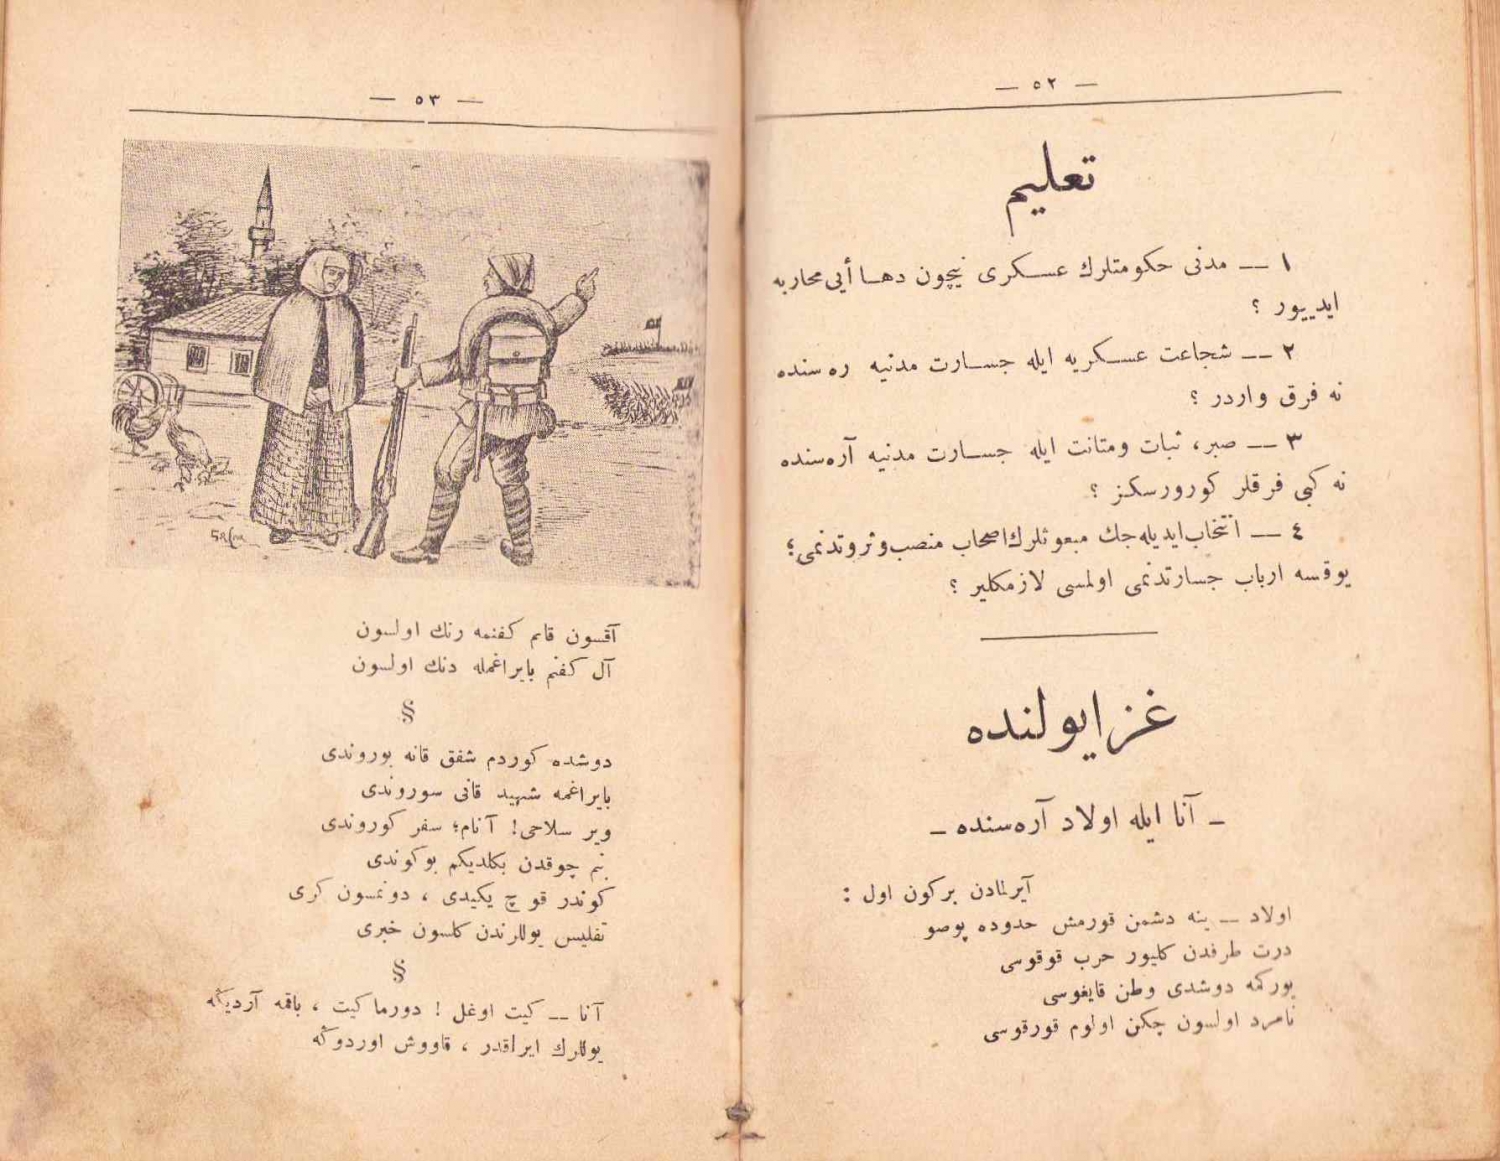 — ٥٢ —
تعليم
١ — مدنى حكومتلرك عسكرى نيچون دها أيى محاربه
ايدييور ؟
٢ — شجاعت عسكريه ايله جسارت مدنيه ره سنده
نه فرق واردر ؟
٣ — صبر، ثبات ومتانت ايله جسارت مدنيه آره‌سنده
نه كبى فرقلر كورورسكز ؟
٤ — انتخاب ايديله‌جك مبعوثلرك اصحاب منصب وثروتدنمى؛
يوقسه ارباب جسارتدنمى اولمسى لازمكلير ؟
غزا يولنده
ـ آنا ايله اولاد آره‌سنده ـ
آيرلمادن بركون اول :
اولاد — ينه دشمن قورمش حدوده پوصو
درت طرفدن كليور حرب قوقوسى
يوركمه دوشدى وطن قايغوسى
نامرد اولسون چكن اولوم قورقوسى
— ٥٣ —
آقسون قانم كفنمه رنك اولسون
آل كفنم بايراغمله دنك اولسون
§
دوشده كوردم شفق قانه بوروندى
بايراغمه شهيد قانى سوروندى
وير سلاحى! آنام؛ سفر كوروندى
بنم چوقدن بكلديكم بوكوندى
كوندر قوچ يكيدى ، دونمسون كرى
تفليس يوللرندن كلسون خبرى
§
آنا — كيت اوغل ! دورما كيت ، باقمه آرديڭه
يوللرك ايراقدر ، قاووش اوردوڭه